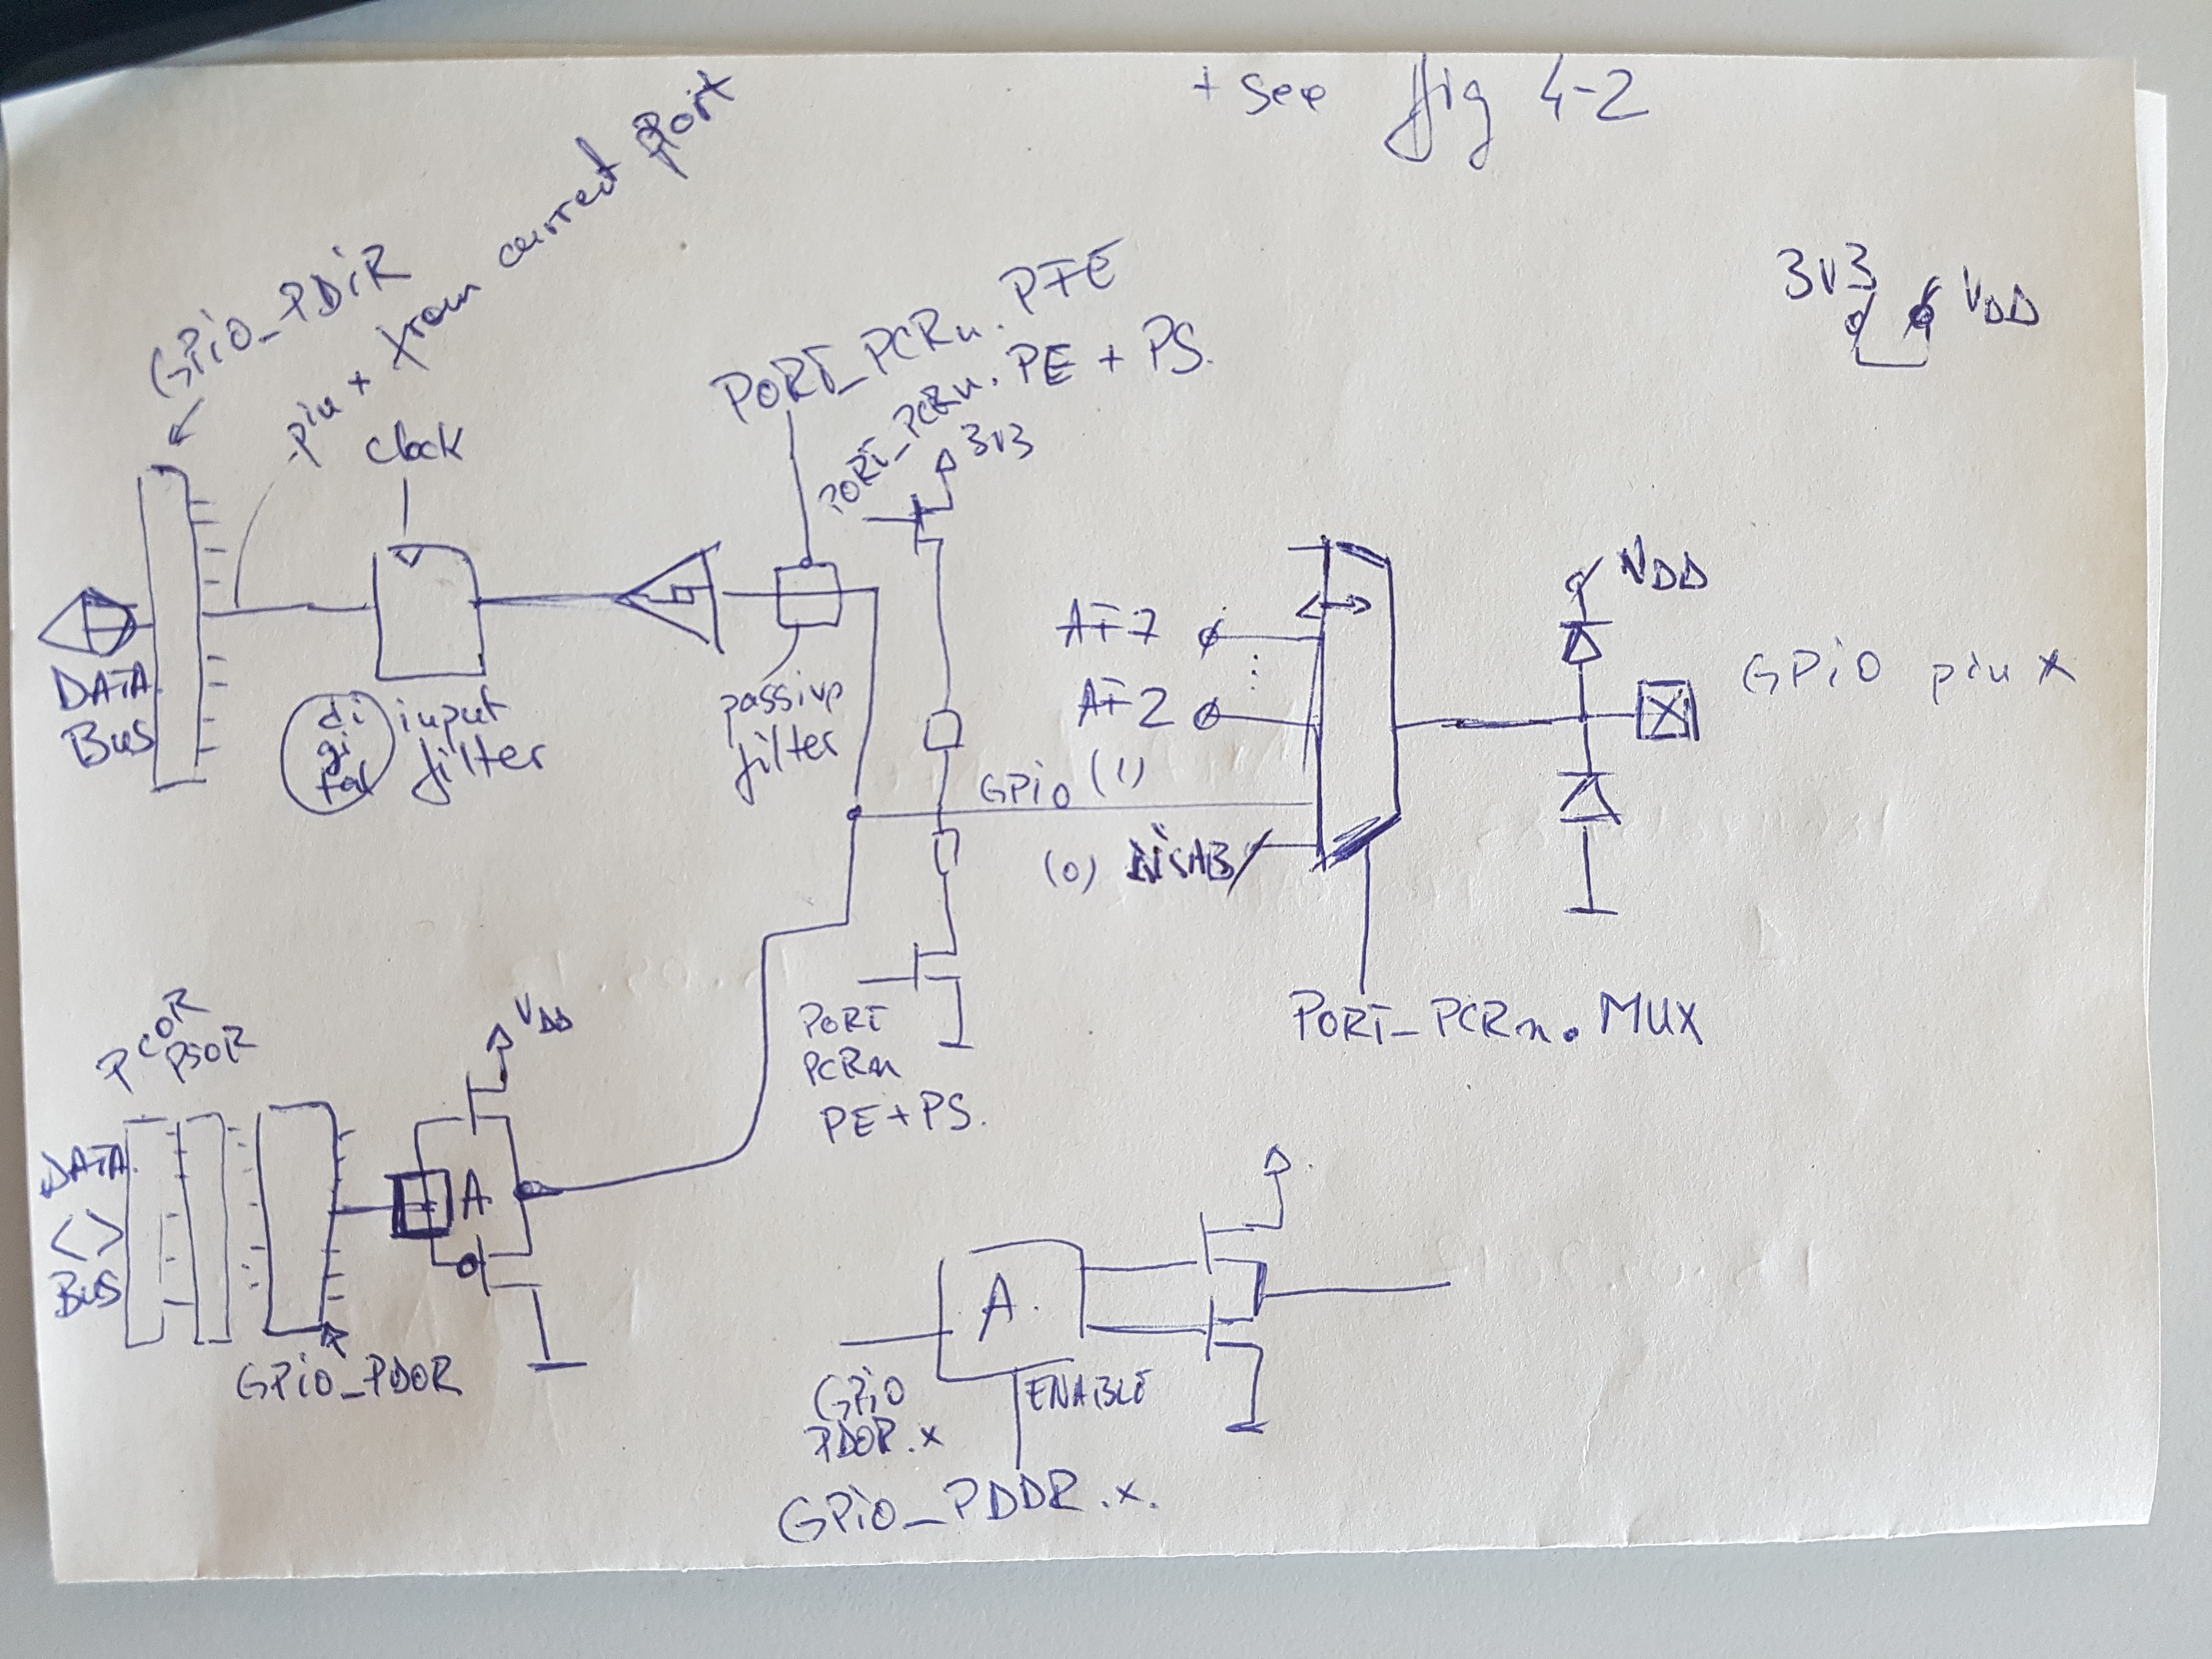 + see fig 4-2
GPiO_PDiR
pin x from current port
clock
PORT_PCRn. PFE
PORT_PCRn. PE + PS.
3V3
3V3
VDD
DATA
BUS
di
gi
tal
input
filter
passive
filter
AF7
AF2
GPiO (1)
(0) DiSAB
VDD
GPiO pin X
PORT_PCRn. MUX
PORT
PCRn
PE + PS.
PCOR
PSOR
VDD
DATA
<>
BUS
A
GPiO_PDOR
A.
GPiO
PDOR.x
ENABLE
GPiO_PDDR.x.